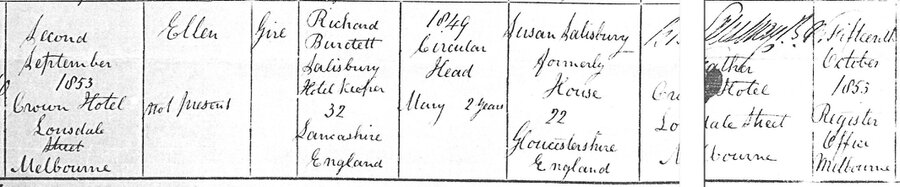 Second
September
1853
Crown Hotel
Lonsdale
Street
Melbourne
Ellen
not present
Girl
Richard
Burdett
Salisbury
Hotel Keeper
32
Lancashire
England
1849
Circular
Head
Mary 2 years
Susan Salisbury
formerly
House
22
Gloucestershire
England
Cr
Lo
M
ather
Hotel
dale Street
bourne
Fifteenth
October
1853
Register
Office
Melbourne